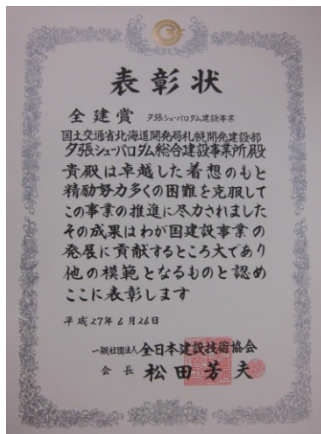 表彰状
全建賞 夕張シューパロダム建設事業
国土交通省北海道開発局札幌開発建設部
夕張シューパロダム総合建設事業所殿
貴殿は卓越した着想のもと
精励努力多くの困難を克服して
この事業の推進に尽力されました
その成果はわが国建設事業の
発展に貢献するところ大であり
他の模範となるものと認め
ここに表彰します
平成27年6月26日
一般社団法人 全日本建設技術協会
会長 松田芳夫